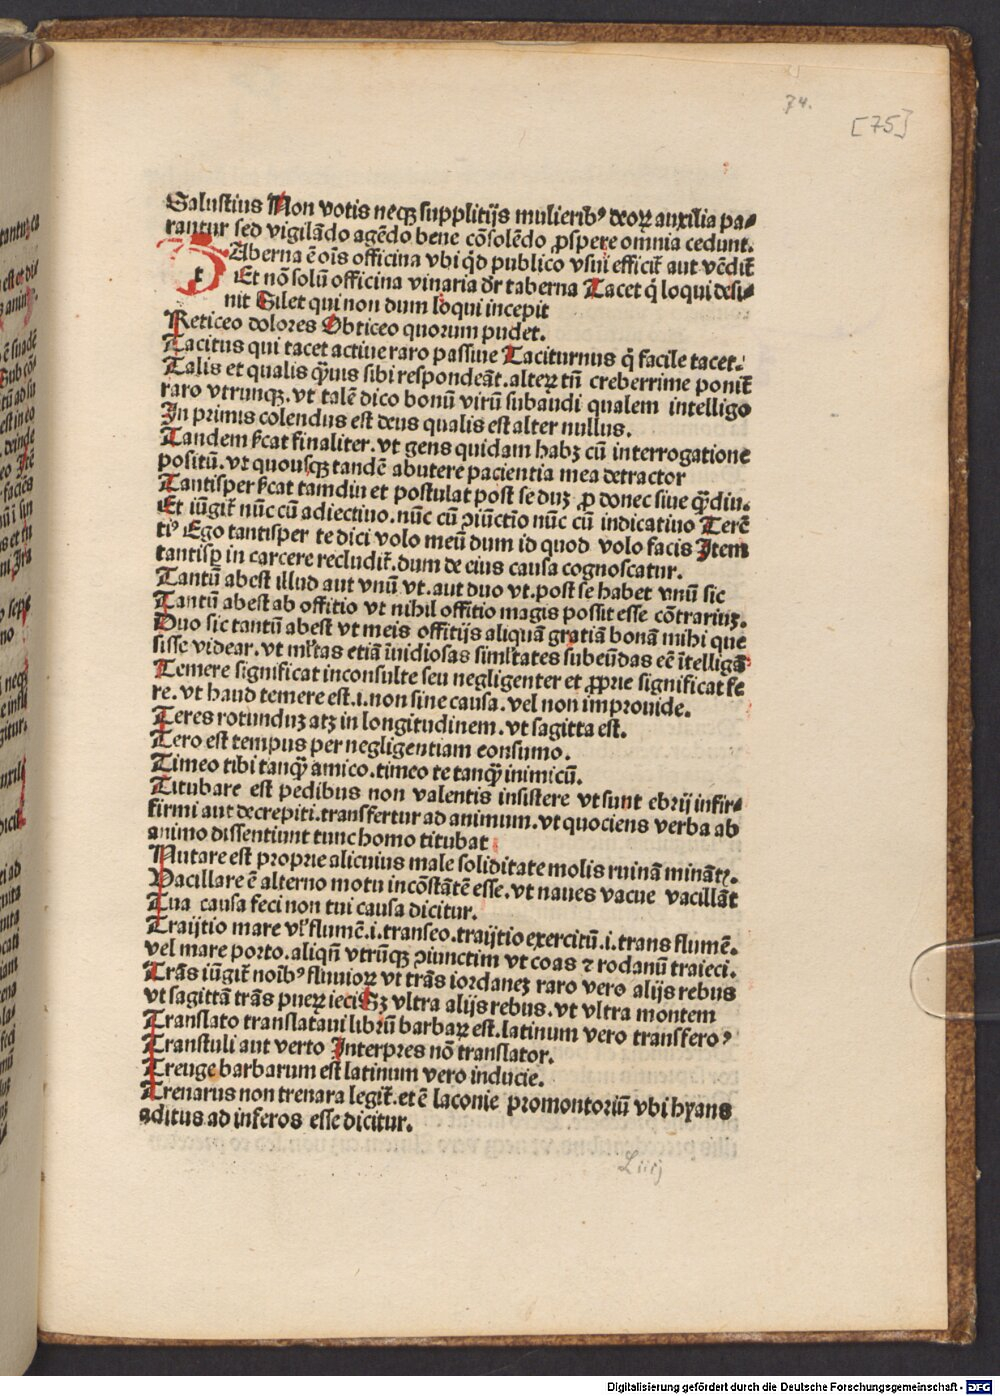 74.
[75]
Salustius Non votis neqʒ supplitijs mulieribꝰ deoꝝ auxilia pa⸗
rantur sed vigilãdo agẽdo bene cõsolẽdo ꝓspere omnia cedunt.
TAberna ẽ oĩs officina vbi qď publico vsui efficit̃ aut vẽdit̃
t Et nõ solũ officina vinaria dr̃ taberna Tacet q̃ loqui desi⸗
nit Silet qui non dum loqui incepit
Reticeo dolores Obticeo quorum pudet.
Tacitus qui tacet actiue raro passiue Taciturnus q̃ facile tacet.
Talis et qualis qũis sibi respondeãt.alteꝝ tñ creberrime ponit̃
raro vtrunqʒ. vt talẽ dico bonũ virũ subaudi qualem intelligo
In primus colendus est deus qualis est alter nullus.
Tandem ſcat finaliter. vt gens quidam habʒ cũ interrogatione
positũ. vt quousqʒ tandẽ abutere pacientia mea detractor
Tantisper ſcat tamdiu et postulat post se duʒ ꝓ donec siue qũdiu.
Et iũgit̃ nũc cũ adiectiuo. nũc cũ ↄiũctio nũc cũ indicatiuo Terẽ
tiꝰ Ego tantisper te dici volo meũ dum id quod volo facis Item
tantisꝑ in carcere recludit̃. dum de eius causa cognoscatur.
Tantũ abest illud aut vnũ vt. aut duo vt. post se habet vnũ sic
Tantũ abest ab offitio vt nihil offitio magis possit esse cõtrariuʒ.
Duo sic tantũ abest vt meis offitijs aliquã gratiã bonã mihi que
sisse videar. vt ml̃tas etiã ĩuidiosas siml̃tates subeũdas eẽ ĩtelligã
Temere significat inconsulte seu negligenter et ꝓprie significat fe
re. vt haud temere est.i. non sine causa. vel non improuide.
Teres rotunduʒ atʒ in longitudinem. vt sagitta est.
Tero est tempus per negligentiam consumo.
Timeo tibi tanq̃ amico. timeo te tanq̃ inimicũ.
Titubare est pedibus non valentis insistere vt sunt ebrij infir⸗
firmi aut decrepiti. transfertur ad animum. vt quociens verba ab
animo dissentiunt tunc homo titubat
Nutare est proprie alicuius male soliditate molis ruinã minãtꝭ.
Vacillare ẽ alterno motu incõstãtẽ esse. vt naues vacue vacillãt
Tua causa feci non tui causa dicitur.
Traijtio mare vl̃ flumẽ.i. transeo. traijtio exercitũ.i. trans flumẽ.
vel mare porto. aliqñ vtrũqʒ ↄiunctim vt coas ⁊ rodanũ traieci.
Trãs iũgit̃ noĩbꝰ fluuioꝝ vt trãs iordaneʒ raro vero alijs rebus
vt sagittã trãs pueꝝ ieci Sʒ vltra alijs rebus. vt vltra montem
Translato translataui librũ barbaꝝ est. latinum vero transfero ꝰ
Transtuli aut verto Interpres nõ translator.
Treuge barbarum est latinum vero inducie.
Trenarus non trenara legit̃. et ẽ laconie promontoriũ vbi hyans
aditus ad inferos esse dicitur.
L iiij
Digitalisierung gefördert durch die Deutsche Forschungsgemeinschaft - DFG